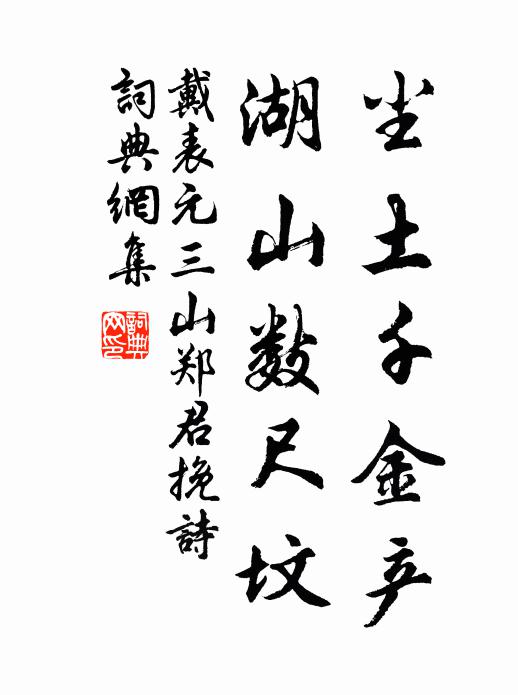 尘土千金产
湖山数尺坟
戴表元三山郑君挽詩
詞典網集
詞典网印